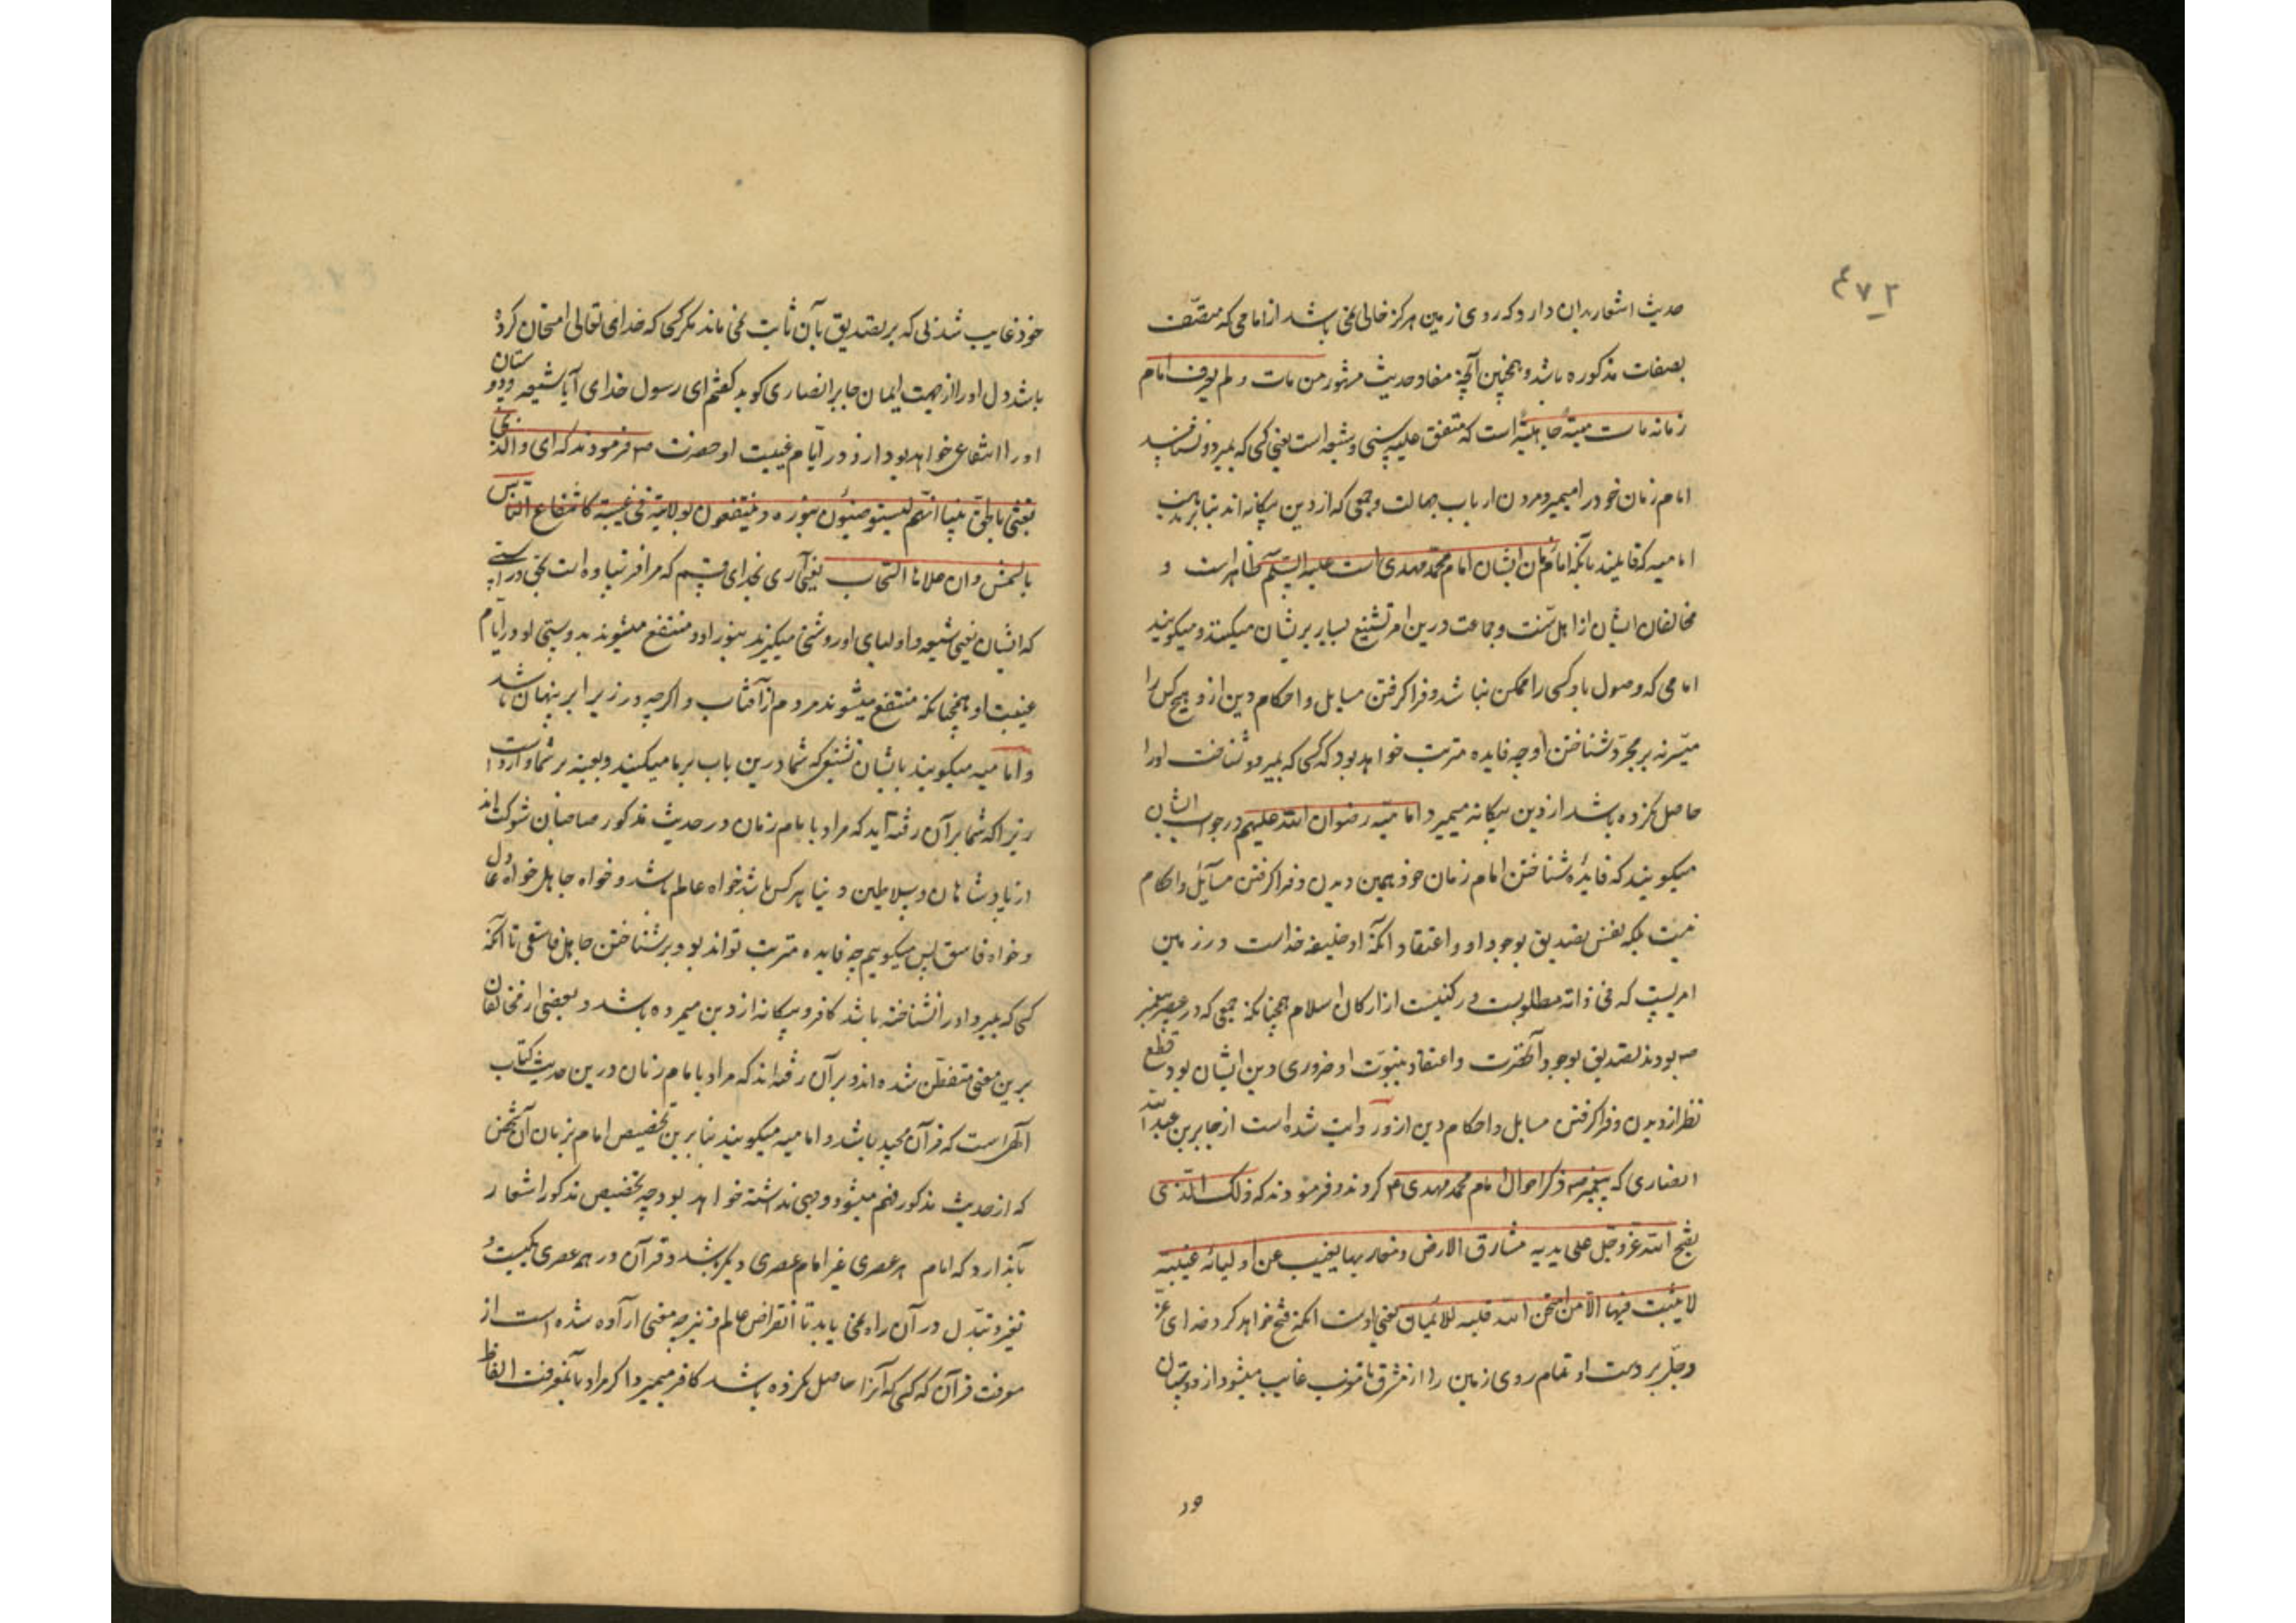 ۴۷۲
حدیث اشعار بدان دارد که روی زمین هرکز خالی نمی باشد از امامی که متصّف
بصفات مذکوره باشد و همچنین آنچه مفاد حدیث مشهور من مات و لم یعرف امام
زمانه مات میتةً جاهلیّةً است که متفق علیه سنی و شیعه است یعنی کسی که بمیرد و نشناسد
امام زمان خود را میمیرد مردن ارباب جهالت و جمعی که از دین بیکانه اند بنابر مذهب
امامیه که قایلند بآنکه امام زمان ایشان امام محمد مهدی است علیه السّلم ظاهر است و
مخالفان ایشان از اهل سنّت و جماعت درین امر تشنیع بسیار بر ایشان میکنند و میکویند
امامی که وصول باو کسی را ممکن نباشد و فرا کرفتن مسایل و احکام دین ازو هیچ کس را
میسّر نه بر مجرّد شناختن او چه فایده مترتب خواهد بود که کسی که بمیرد و شناخت او را
حاصل نکرده باشد از دین بیکانه میمیرد و امامیّه رضوان الله علیهم در جواب ایشان
میکویند که فایدهٔ شناختن امام زمان خود همین دیدن و فرا کرفتن مسآئل و احکام
نیست بلکه نفس تصدیق بوجود او و اعتقاد آنکه او خلیفه خداست در زمین
امریست که فی ذاته مطلوبست و رکنیست از ارکان اسلام همچنانکه جمعی که در عصر پیغمبر
صه بودند تصدیق بوجود آنحضرت و اعتقاد بنبوّت او ضروری دین ایشان بود قطع
نظر از دیدن و فرا کرفتن مسایل و احکام دین ازو روایت شده است از جابر بن عبد الله
انصاری که پیغمبر صه ذکر احوال امام محمد مهدی عم کردند و فرمودند که ذلک الّذی
یفتح الله عز و جل علی یدیه مشارق الارض و مغاربها یغیب عن اولیائه غیبة
لا یثبت فیها الّا من امتحن الله قلبه للایمان یعنی اوست آنکه فتح خواهد کرد خدای عزّ
و جلّ بر دست او تمام روی زمین را از مشرق تا مغرب غایب میشود از دوستان
خود غایب شدنی که بر تصدیق بآن ثابت نمی ماند مکر کسی که خدای تعالی امتحان کرده
باشد دل او را از جهت ایمان جابر انصاری کوید کفتم ای رسول خدای آیا شیعه و دوستان
او را انتفاعی خواهد بود ازو در ایّام غیبت او حضرت صه فرمودند که ای والّذی
بعثنی بالحق نبیا انّهم لیستضیئون بنوره و ینتفعون بولایته فی غیبته کانتفاع النّاس
بالشمس و ان علاها السّحاب یعنی آری بخدای قسم که مرا فرستاده است بحق و راستی
که ایشان یعنی شیعه و اولیای او روشنی میکیرند بنور او و منتفع میشوند بدوستی او در ایّام
غیبت او همچنانکه منتفع میشوند مردم از آفتاب و اکرچه در زیر ابر پنهان باشد
و امامیه میکویند بایشان تشنیعی که شما درین باب بر ما میکنید و بعینه بر شما وارد است
زیرا که شما بر آن رفته اید که مراد بامام زمان در حدیث مذکور صاحبان شوکت اند
از پادشاهان و سلاطین دنیا هر کس باشد خواه عالم باشد و خواه جاهل خواه عادل
و خواه فاسق پس میکوییم چه فایده مترتب تواند بود بر شناختن جاهل فاسقی تا آنکه
کسی که بمیرد و او را نشناخته باشد کافر و بیکانه از دین میمرده باشد و بعضی از مخالفان
برین معنی متفطّن شده اند و بر آن رفته اند که مراد بامام زمان درین حدیث کتاب
الهی است که قرآن مجید باشد و امامیه میکویند بنابرین تخصیص امام بزمان آن شخص
که از حدیث مذکور فهم میشود وجهی نداشته خواهد بود چه تخصیص مذکور اشعار
بآن دارد که امام هر عصری غیر امام عصری دیکر باشد و قرآن در همه عصری یکیست و
تغیر و تبدّل در آن راه نمی یابد تا انقراض عالم و نیز چه معنی اراده شده است از
معرفت قرآن که کسی که آنرا حاصل نکرده باشد کافر میمیرد اکر مراد بآن معرفت الفاظ